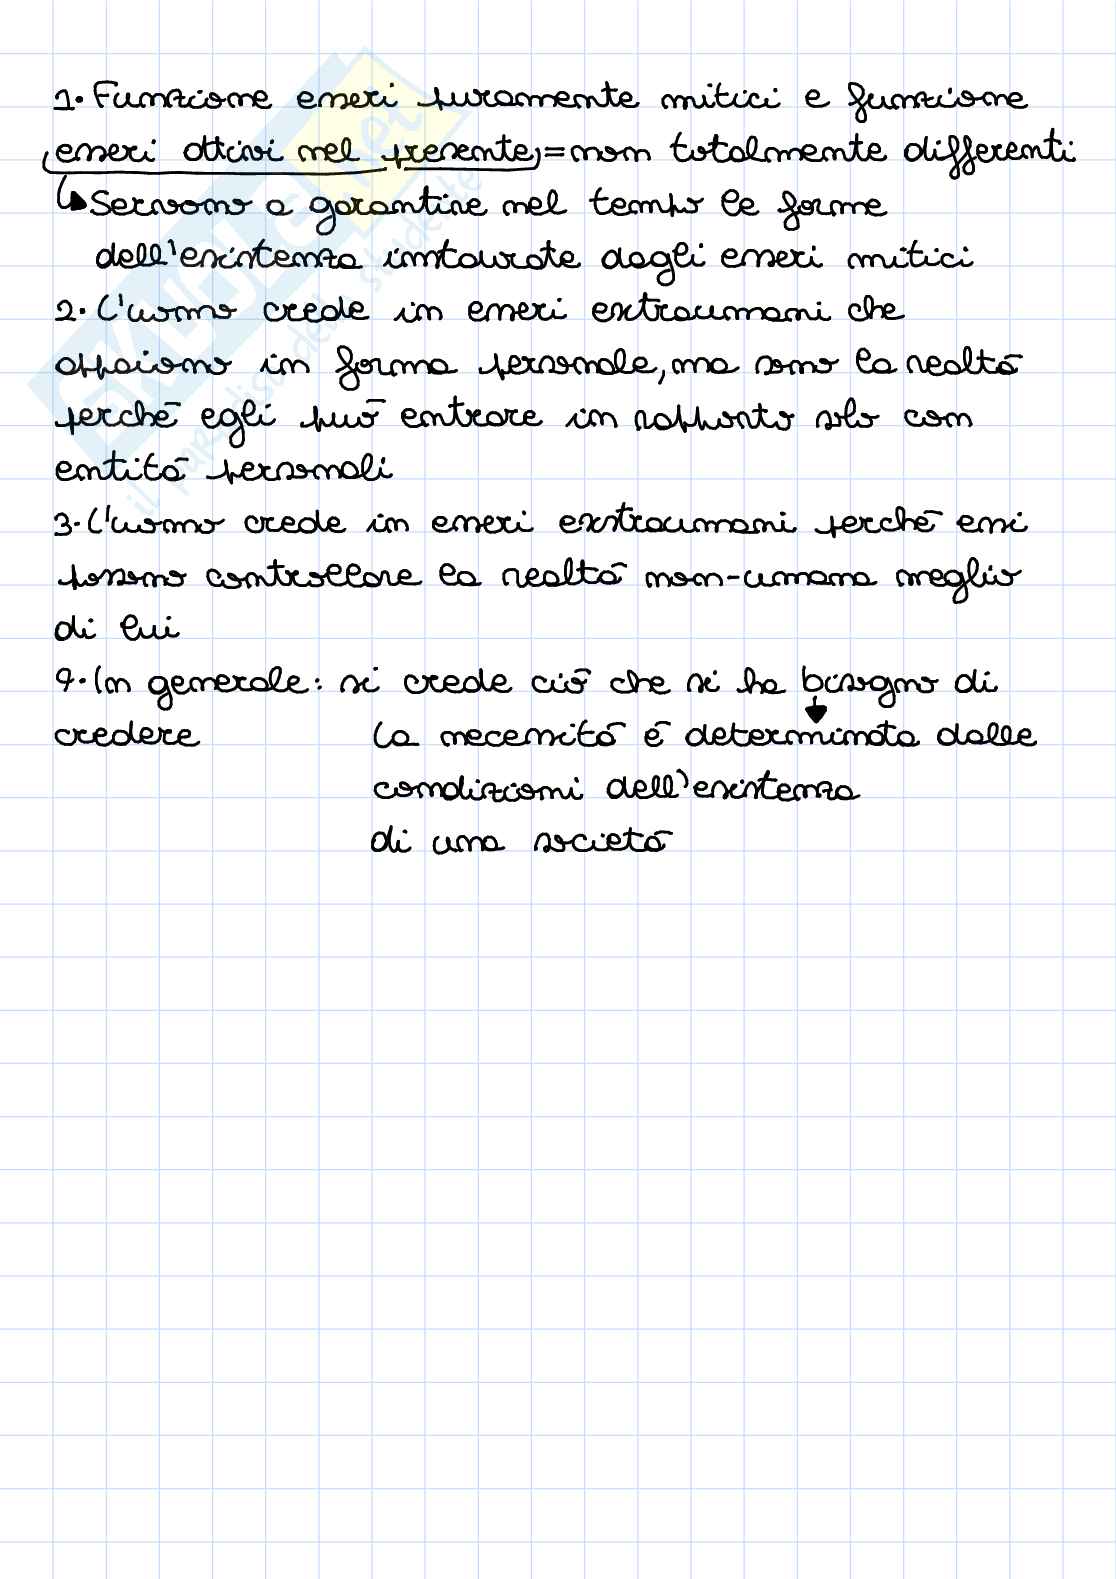 1. Funzione esseri puramente mitici e funzione
esseri attivi nel presente = non totalmente differenti
Servono a garantire nel tempo le forme
dell'esistenza instaurate dagli esseri mitici
2. L'uomo crede in esseri extraumani che
appaiono in forma personale, ma sono la realtà
perché egli può entrare in rapporto solo con
entità personali
3. L'uomo crede in esseri exstraumani perché essi
possono controllare la realtà non-umana meglio
di lui
4. In generale: si crede ciò che si ha bisogno di
credere La necessità è determinata dalle
condizioni dell'esistenza
di una società
SKUOLA.net
il paradiso dello studente